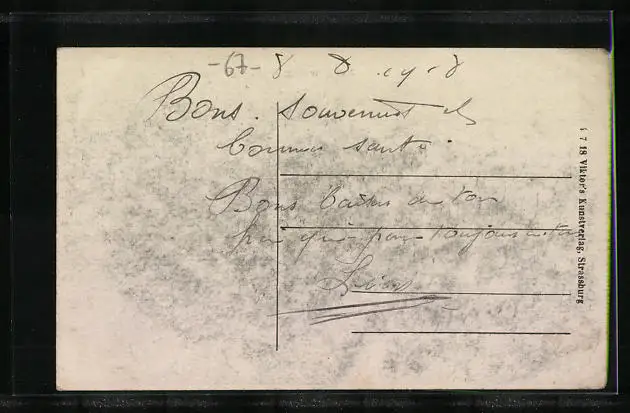 -67- 8 8 .19.18
Bons souvenirs et
bonne santé
Bons baisés de ton
qui pour toujours ton
Léon
4 7 18 Viktor's Kunstverlag, Strassburg